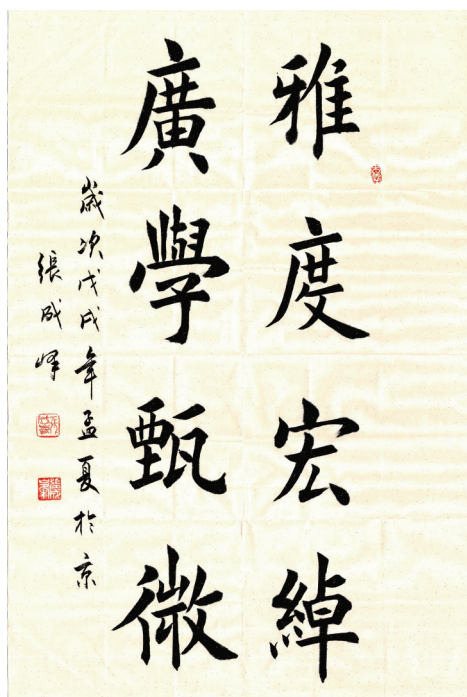 雅度宏綽
廣學甄微
歲次戊戌年孟夏於京
張成峰